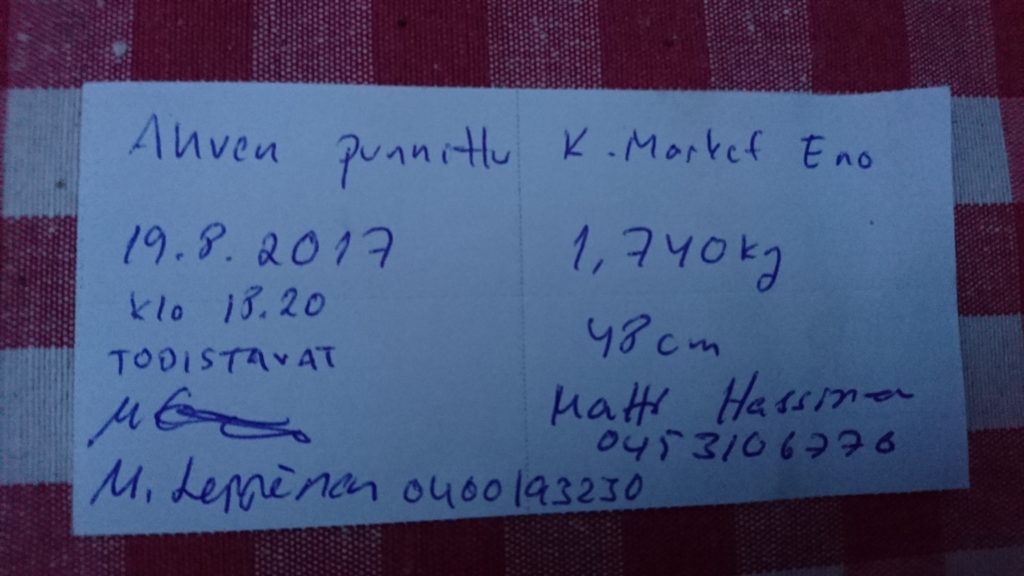 Ahven punnittu K.Market Eno
19.8.2017 1,740kg
klo 18.20
48cm
TODISTAVAT
M
Matti Hassinen
0453106776
M. Leppänen 0400193230